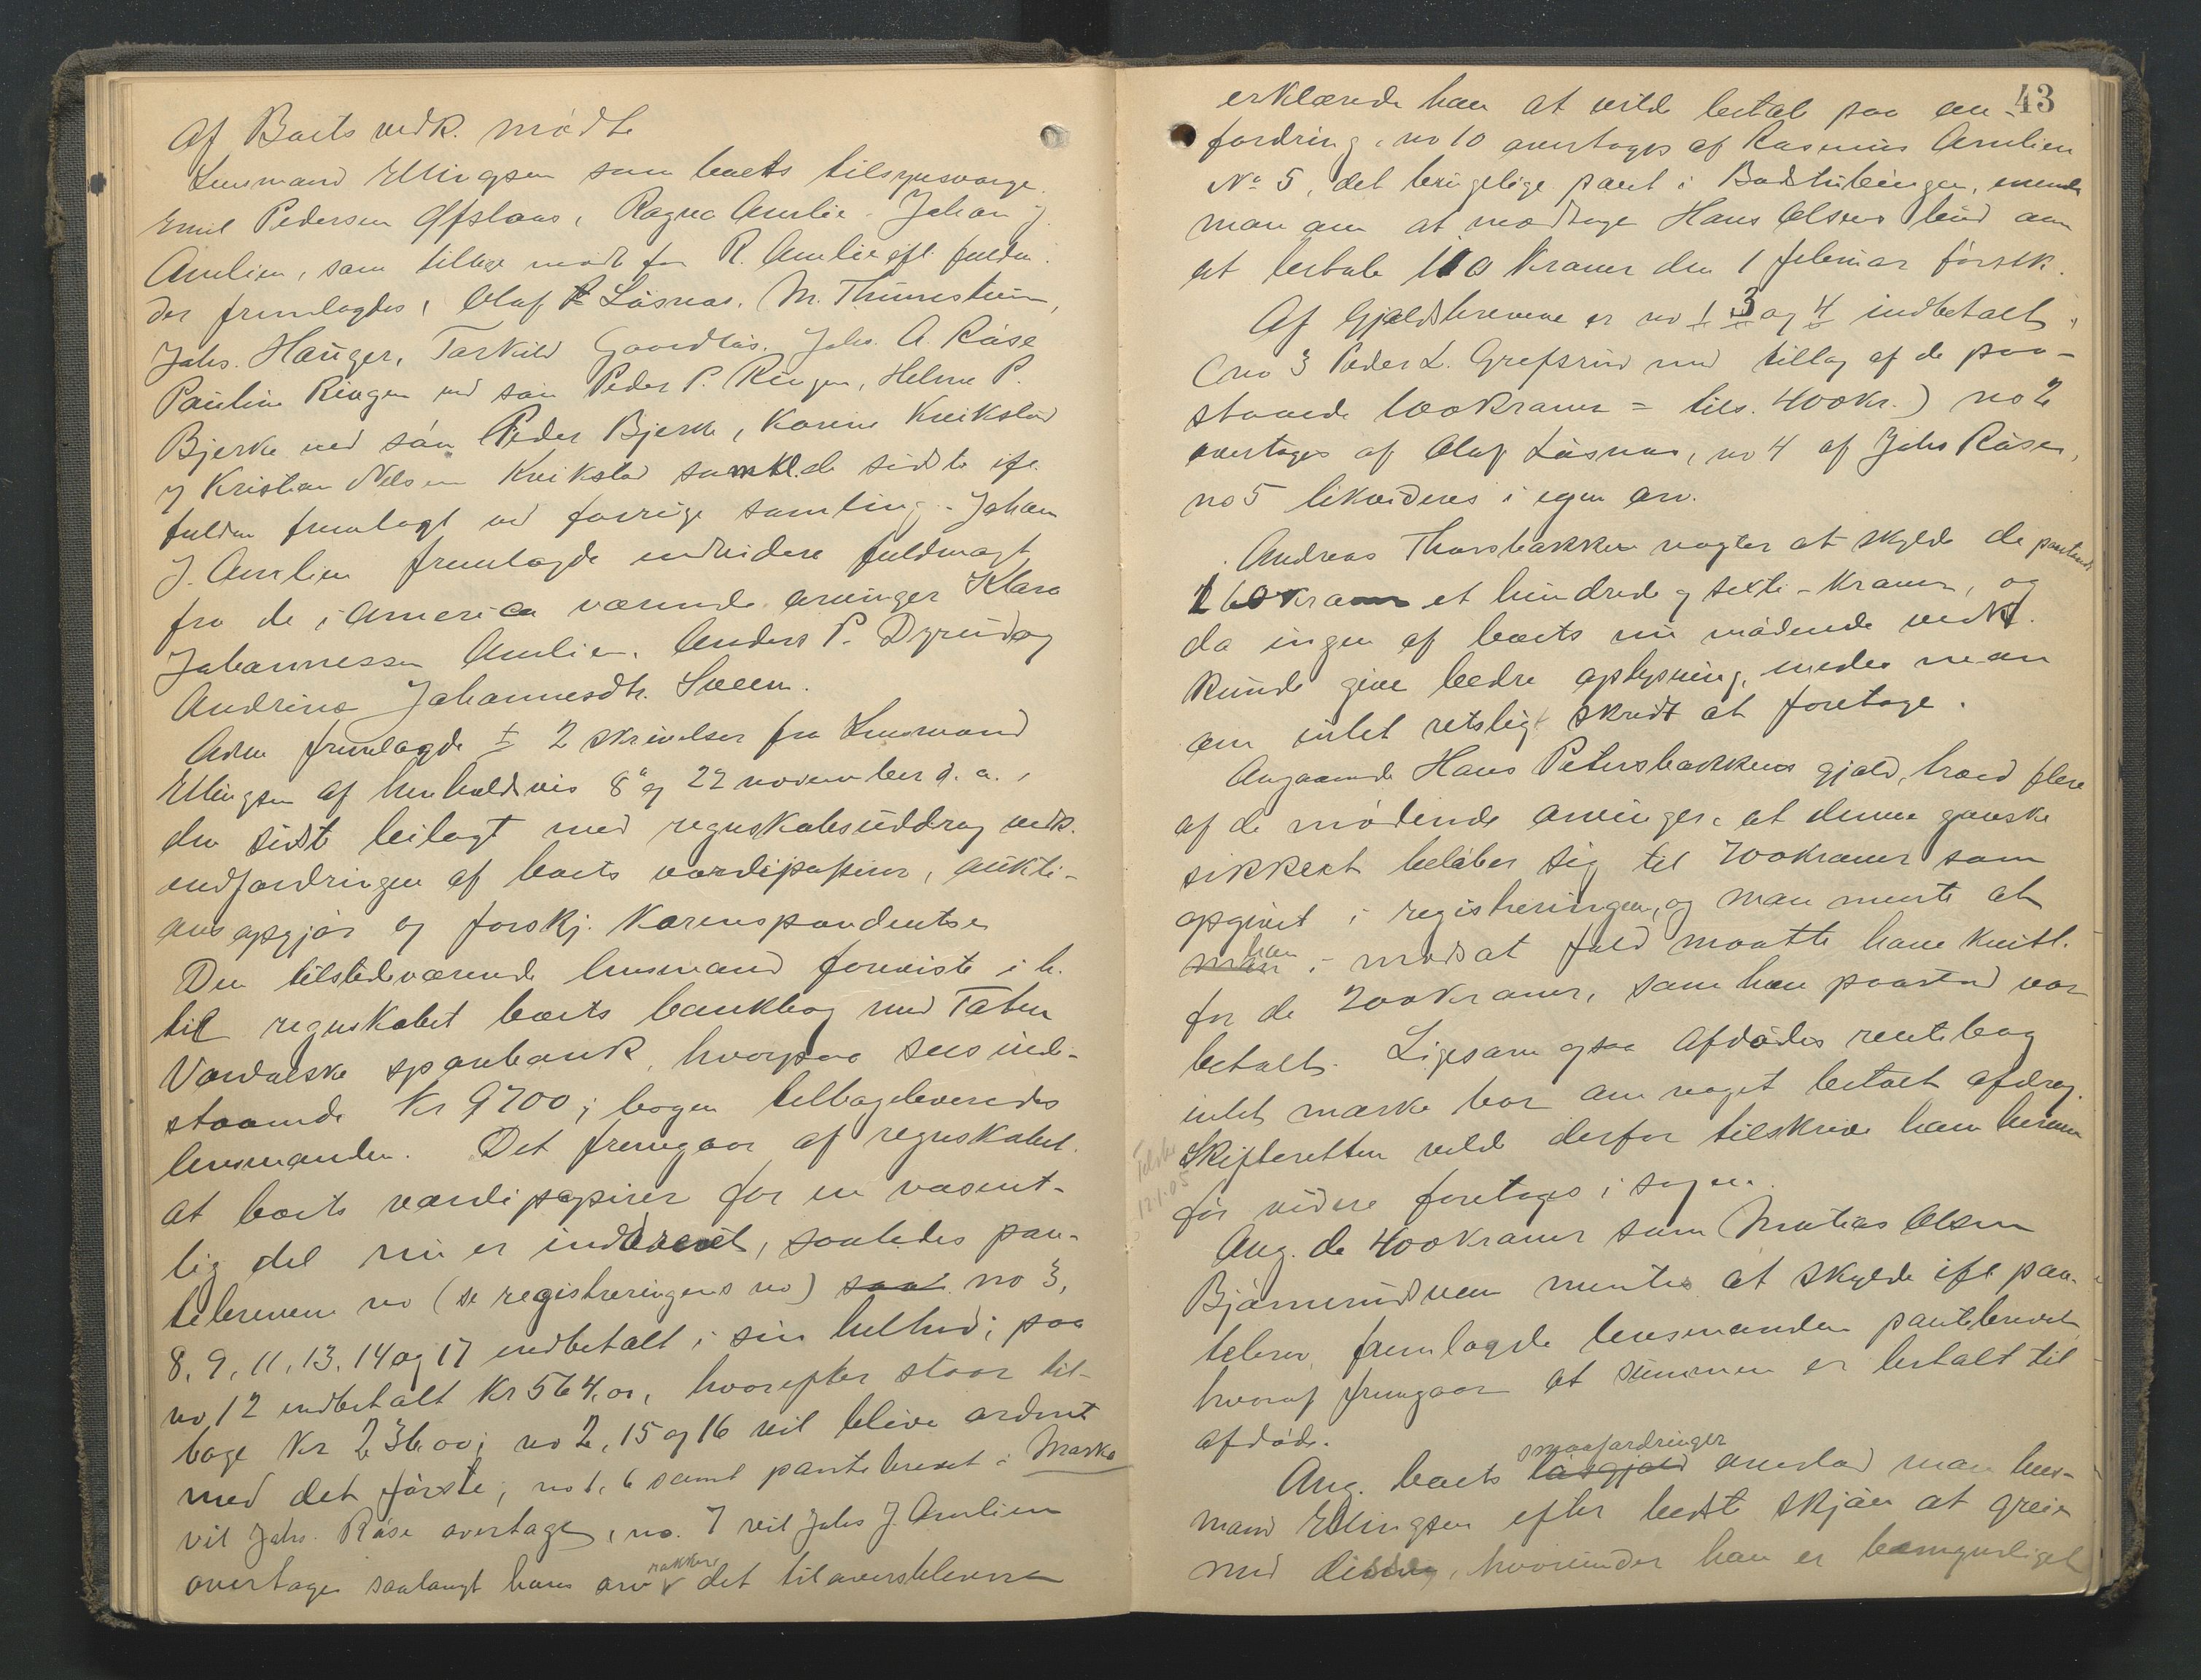 Af Boets vedk. mödte
Lensmand Ellingsen som boets tilsynsværge.
Emil Pedersen Ofslaas, Ragna Amlie. Johan J.
Amlien, som tillige mödte for R. Amlie ifl. fuldm.
der fremlagdes, Olaf Låsnas. M. Thunestuen,
Johs. Hauger, Torkild Gaardlås. Johs. A. Råse
Pauline Ringen ved sön Peder P. Ringen, Helene P.
Bjerke ved sön Peder Bjerke, Karine Kvikstad
og Kristian Nelsen Kvikstad samtl. de sidste ifl.
fuldm fremlagt ved forrige samling. Johan
J. Amlien fremlagde endvidere fuldmagt
fra de i America værende arvinger Klara
Johannessen Amlien. Anders P. Dyrud og
Andrine Johannesdtr. Sveen.
Adm fremlagde 2 skrivelser fra Lensmand
Ellingsen af henholdsvis 8de og 22 november d. a.,
den sidste bilagt med regnskabsuddrag vedk.
indfordringen af boets værdipapirer, aukti-
onsopgjör og forskj. Korrespondentse
Den tilstedeværende lensmand foreviste i h.
til regnskabet boets bankbog med Toten
Vardalske sparebank, hvorpaa sees inde-
staaende Kr 9700; bogen tilbageleveredes
lensmanden. Det fremgaar af regnskabet
at boets værdipapirer for en væsent-
lig del nu er inddrevet, saaledes pan-
tebrevene no (se registreringens no) no 3,
8, 9, 11, 13, 14 og 17 indbetalt i sin helhed; paa
no 12 indbetalt Kr 564,00, hvorefter staar til-
bage Kr 236,00; no 2, 15 og 16 vil blive ordnet
med det förste; no 1, 6 samt pantebrevet i Marka
vil Johs. Råse overtage, no. 7 vil Johs J. Amlien
overtage saalangt hans arv rækker det tiloversblevne
43
erklærede han at ville betale paa an-
fordring, no 10 overtages af Rasmus Amlien
No 5, det tvingelige pant i Badstubeingen, enedes
man om at modtage Hans Olsens bud om
at betale 110 Kroner den 1 februar förstk.
Af Gjældsbrevene er no 1 3 og 4 indbetalt,
(no 3 Peder L. Grefsrud med tillæg af de paa-
staaede 100 Kroner = tils. 400 kr.) no 2
overtages af Olaf Låsnas, no 4 af Johs Råse,
no 5 likvideres i egen arv.
Andreas Thorsbakken nægter at skylde de paastaaede
160 kroner et hundrede og sexti - Kroner, og
da ingen af boets nu mödende vedk.
kunde give bedre oplysning, enedes man
om intet retsligt skridt at foretage.
Angaaende Hans Petersbakkens gjæld, hævd flere
af de mödende arvinger, at denne ganske
sikkert belöber sig til 700 kroner som
opgivet i registreringen, og man mente at
han i modsat fald maatte have kvitt.
for de 200 kroner, som han paastod var
betalt. Ligesom ogsaa Afdödes rentebog
intet mærke bar om noget betalt afdrag.
Skifteretten vilde derfor tilskrive ham herom
för videre foretages i sagen.
Tilskr
12.1.05
Ang. de 400 Kroner som Matias Olsen
Bjørnerudsveen mentes at skylde ifl pan-
tebrev, fremlagde lensmanden pantebrevet
hvoraf fremgaar at summen er betalt til
afdöde.
smaafordringer
Ang. boets låsgjæld overlod man lens-
mand Ellingsen efter bedste skjön at greie
med disse, hvorunder han er bemyndiget